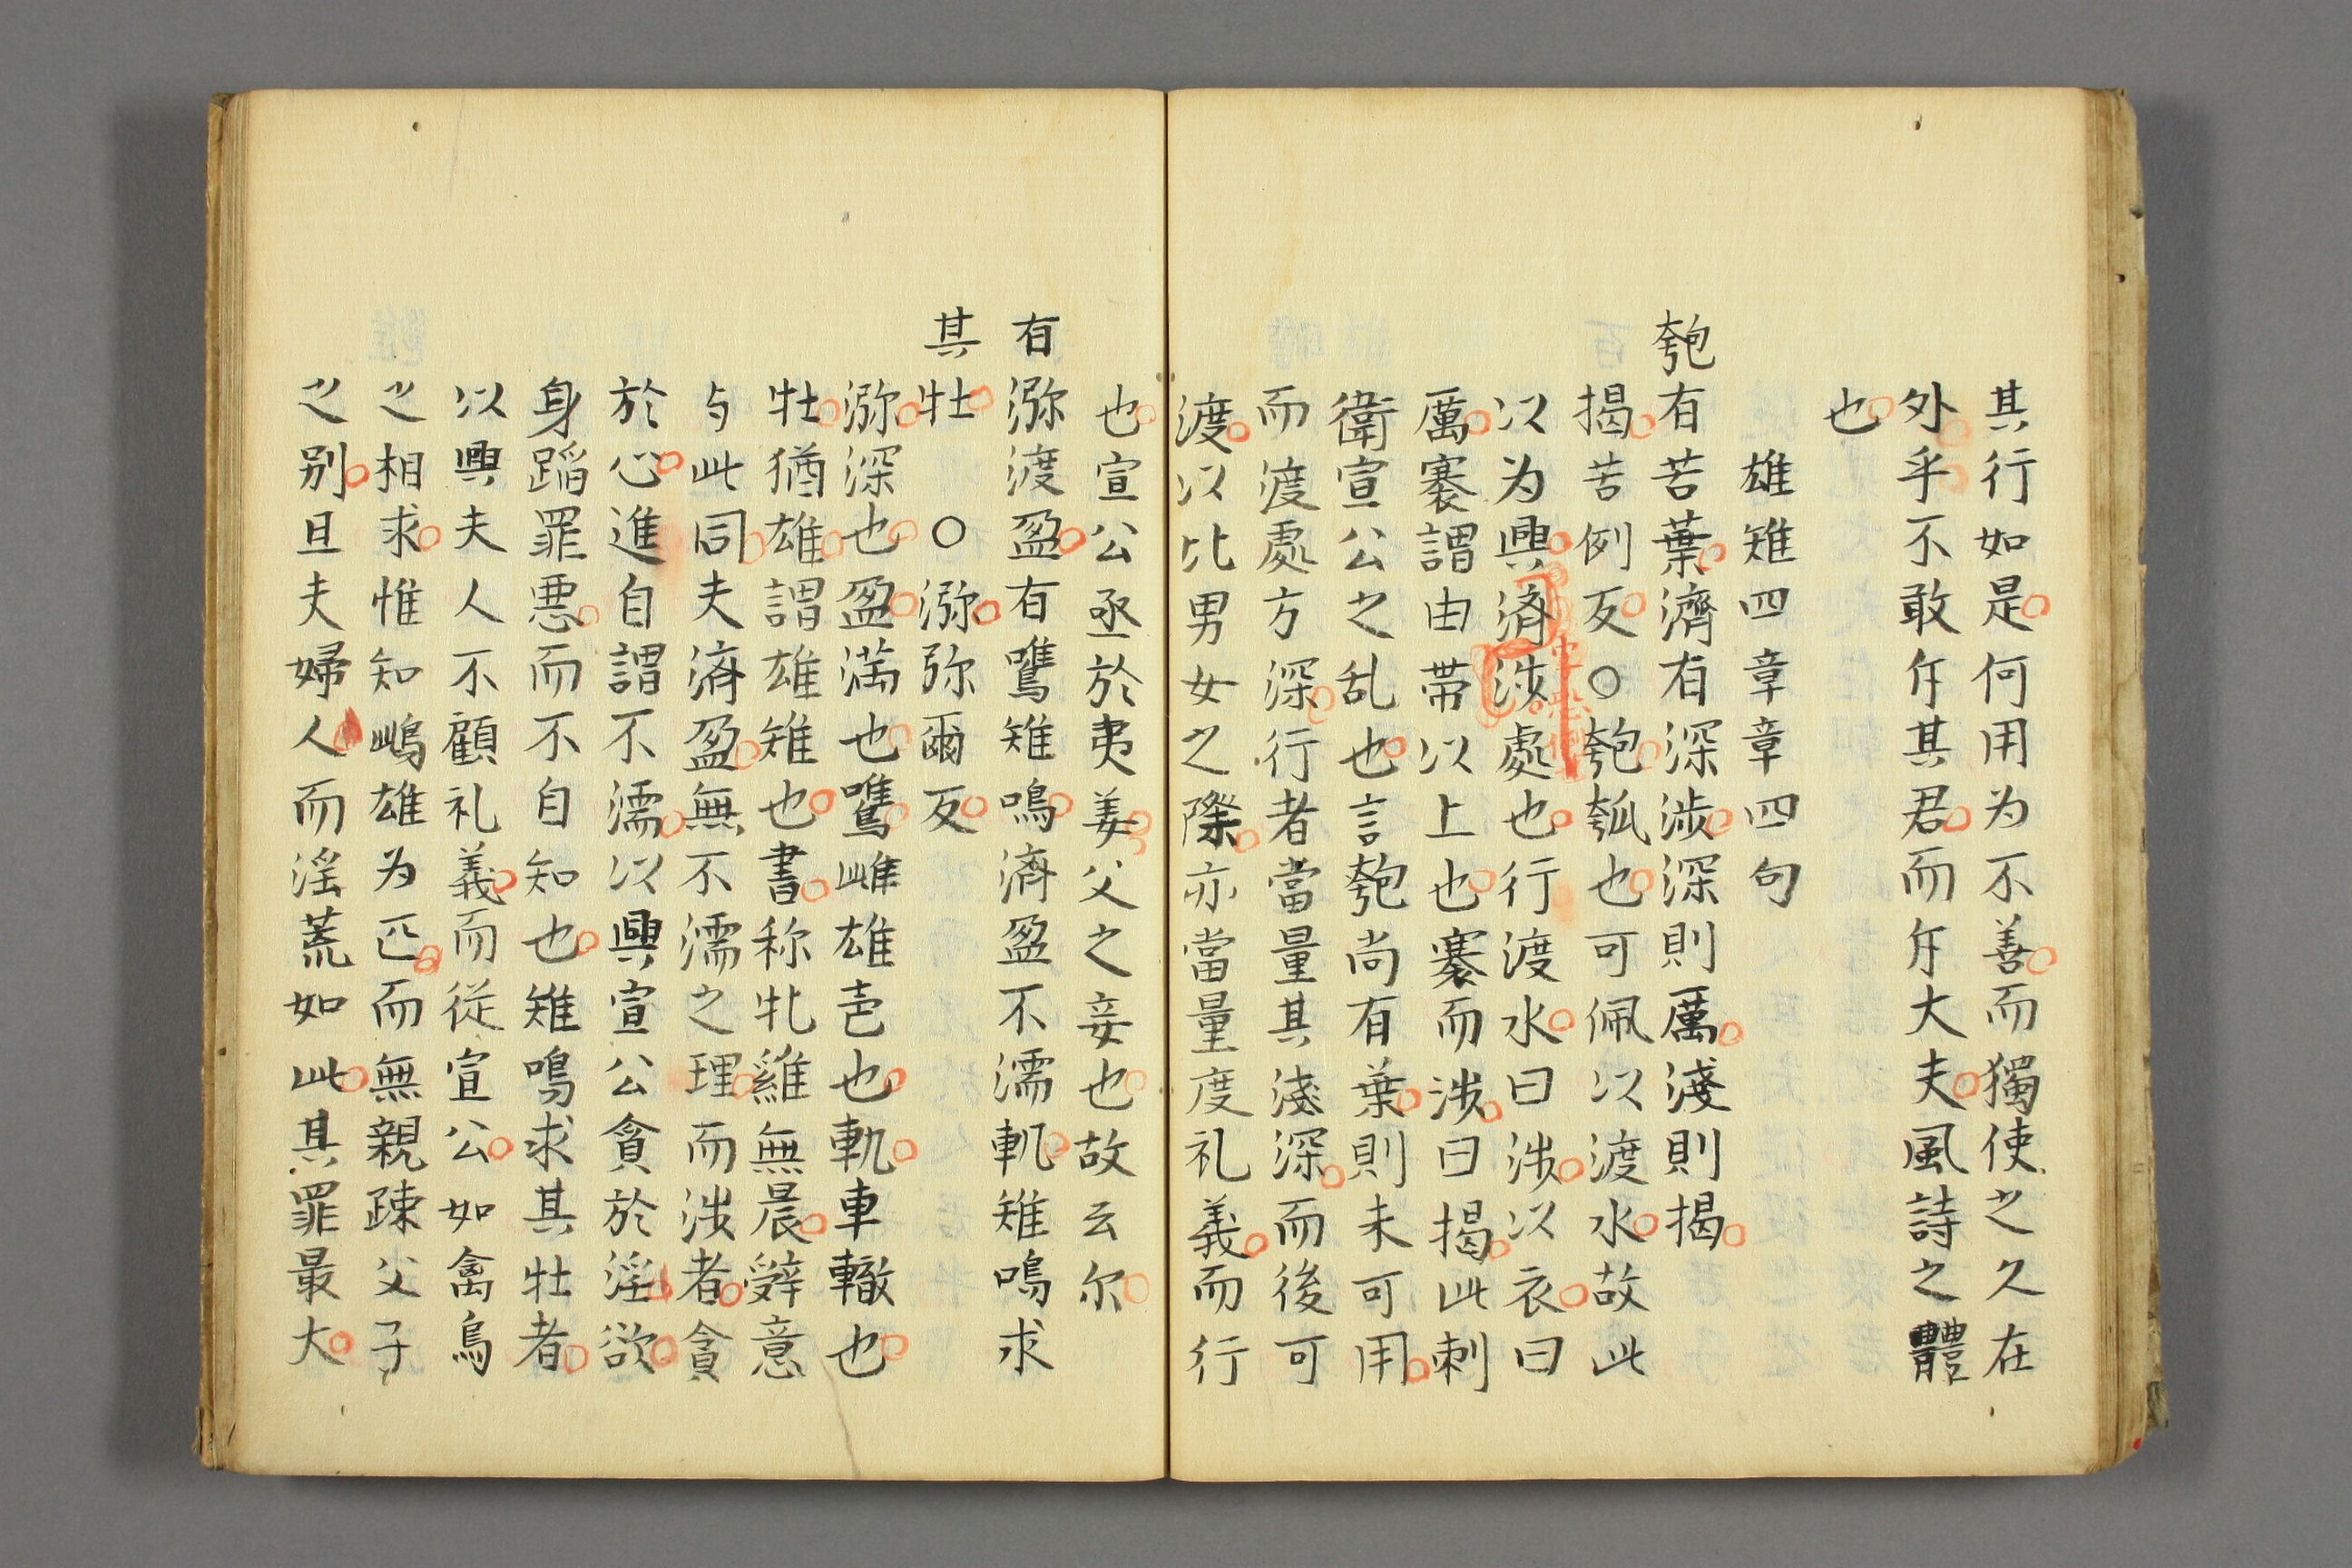 其行如是何用为不善而獨使之久在
外乎不敢斥其君而斥大夫風詩之體
也
雄雉四章章四句
匏有苦葉濟有深涉深則厲淺則揭
揭苦例反○匏瓠也可佩以渡水故此
以为興済涉處也行渡水曰涉以衣曰
厲褰謂由帶以上也褰而涉曰揭此刺
衛宣公之乱也言匏尚有葉則未可用
而渡處方深行者當量其淺深而後可
渡以比男女之際亦當量度礼義而行
也宣公烝於夷姜父之妾也故云尔
有瀰渡盈有鷕雉鳴済盈不濡軓雉鳴求
其牡 ○瀰弥爾反
瀰深也盈満也鷕雌雄声也軓車轍也
牡猶雄謂雄雉也書称牝雞無晨辭意
与此同夫済盈無不濡之理而涉者貪
於心進自謂不濡以興宣公貪於淫欲
身蹈罪悪而不自知也雉鳴求其牡者
以興夫人不顧礼義而從宣公如禽鳥
之相求惟知雌雄为匹而無親踈父子
之别且夫婦人而淫荒如此其罪最大